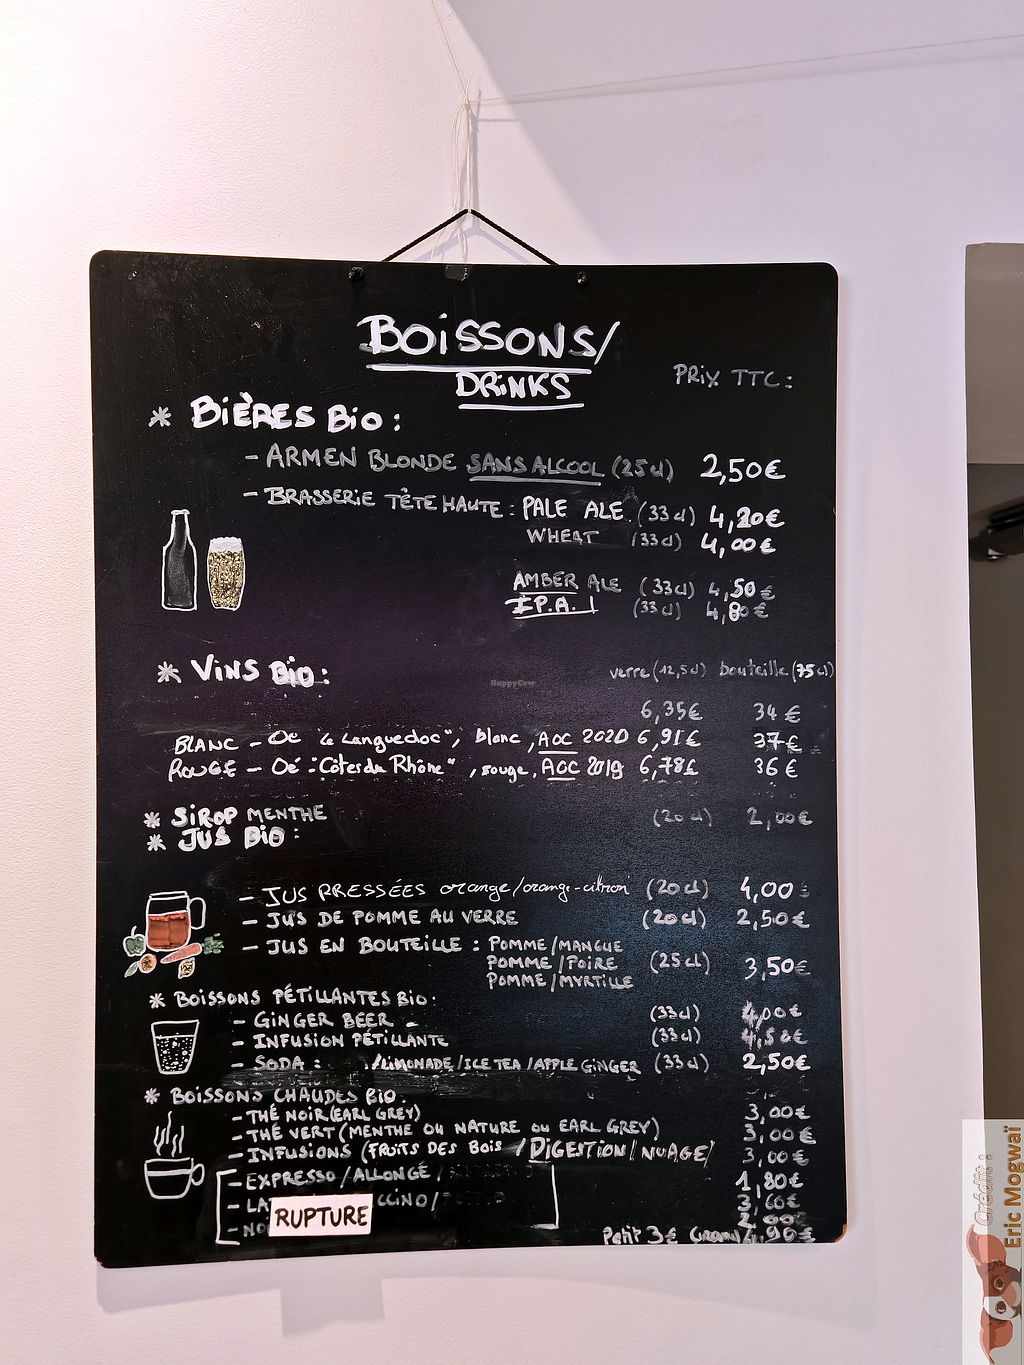 BOISSONS/
DRINKS
PRIX TTC:
* BIÈRES BIO:
- ARMEN BLONDE SANS ALCOOL (25cl) 2,50€
- BRASSERIE TÊTE HAUTE: PALE ALE (33cl) 4,20€
WHEAT (33cl) 4,00€
AMBER ALE (33cl) 4,50€
I.P.A. (33cl) 4,80€
* VINS BIO: verre (12,5cl) bouteille (75cl)
6,35€ 34€
BLANC - Oé "Le Languedoc", blanc, AOC 2020 6,91€ 37€
ROUGE - Oé: "Côtes du Rhône", rouge, AOC 2019 6,78£ 36€
* SIROP MENTHE (20cl) 2,00€
* JUS BIO:
- JUS PRESSÉES orange/orange-citron (20cl) 4,00
- JUS DE POMME AU VERRE (20cl) 2,50€
- JUS EN BOUTEILLE: POMME/MANGUE
POMME/POIRE (25cl) 3,50€
POMME/MYRTILLE
* BOISSONS PÉTILLANTES BIO:
- GINGER BEER (33cl) 4,00€
- INFUSION PÉTILLANTE (33cl) 4,50€
- SODA: /LIMONADE/ICE TEA/APPLE GINGER (33cl) 2,50€
* BOISSONS CHAUDES BIO:
- THÉ NOIR (EARL GREY) 3,00€
- THÉ VERT (MENTHE OU NATURE OU EARL GREY) 3,00€
- INFUSIONS (FRUITS DES BOIS / DIGESTION/NUAGE/ 3,00€
- EXPRESSO/ALLONGÉ/ 1,80€
- LA CCINO/
RUPTURE
- NO
Petit 3€ Grand 4,90€
HappyCow
Crédit :
Eric Mogwaï